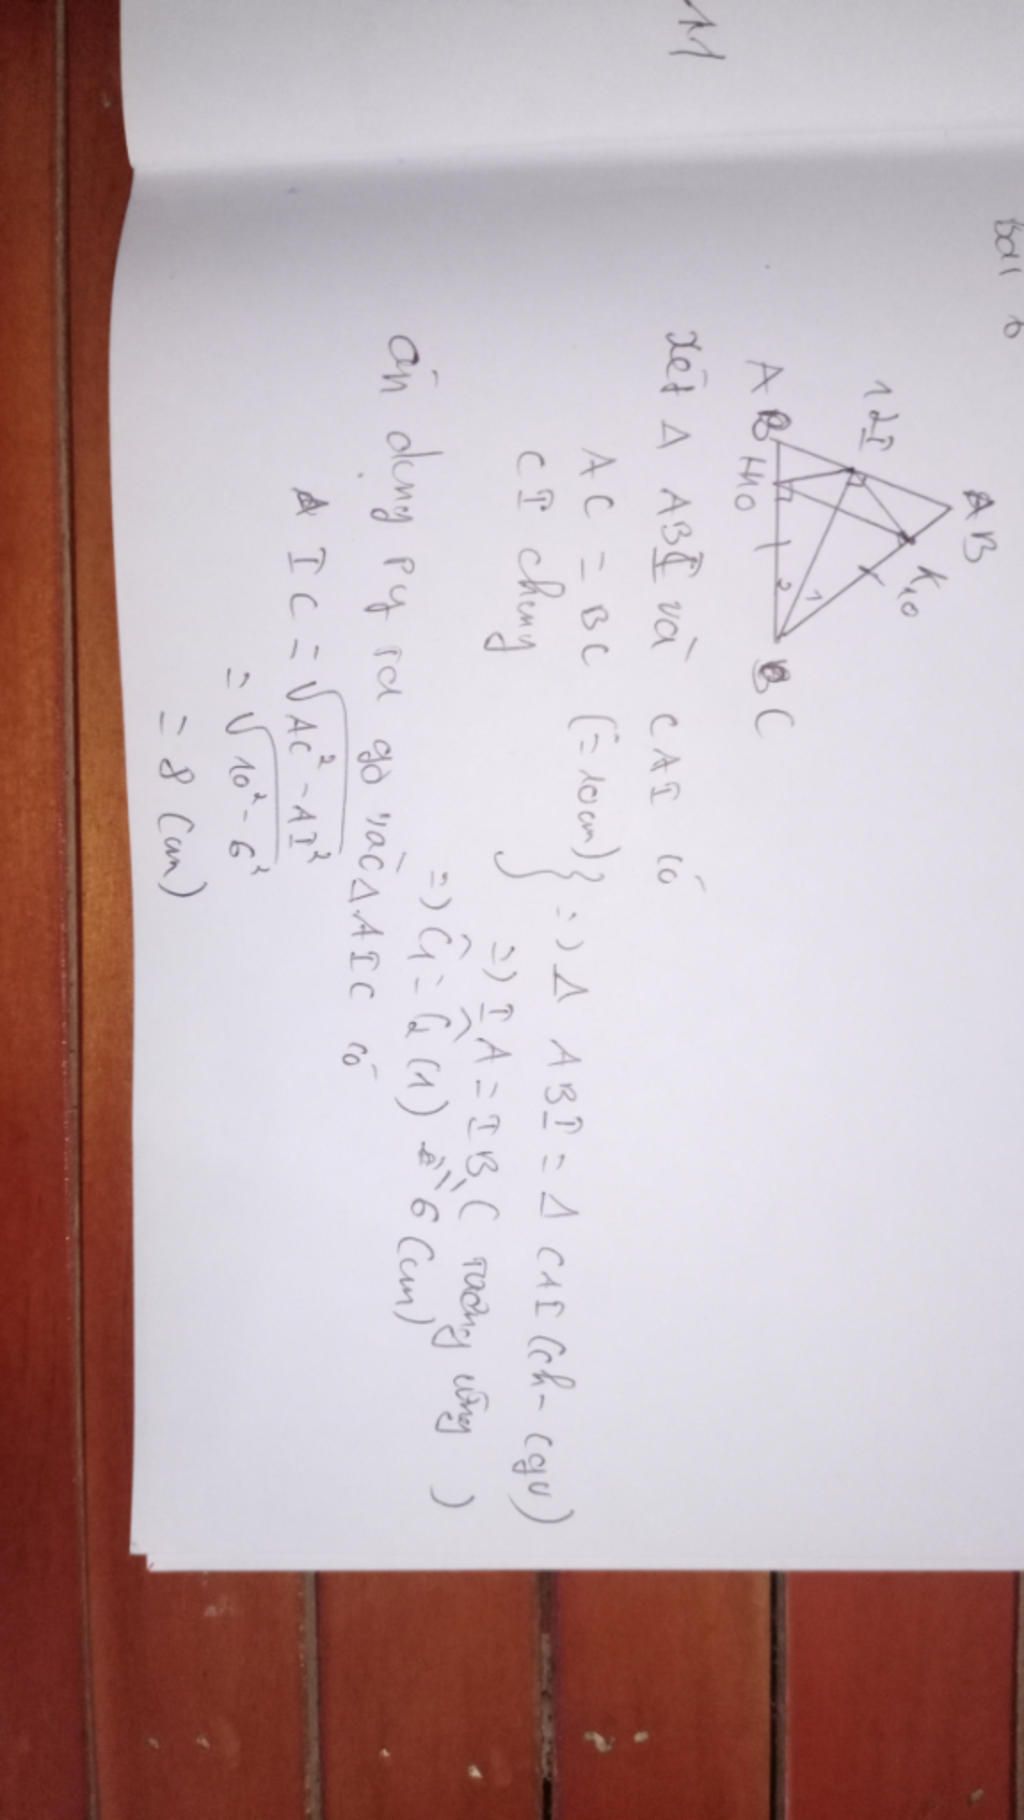 11
bài 6
A B
K 10
12 I
A H 10 C
1 2
xét Δ ABI và CAI có
AC = BC (= 10cm)
CI chung
=) Δ ABI = Δ CAI (ch - cgv)
=) IA = IB ( tương ứng )
=) C1 = C2 (1) = 6 (cm)
áp dụng Py ta go vào Δ AIC có
IC = √AC² - AI²
= √10² - 6²
= 8 (cm)